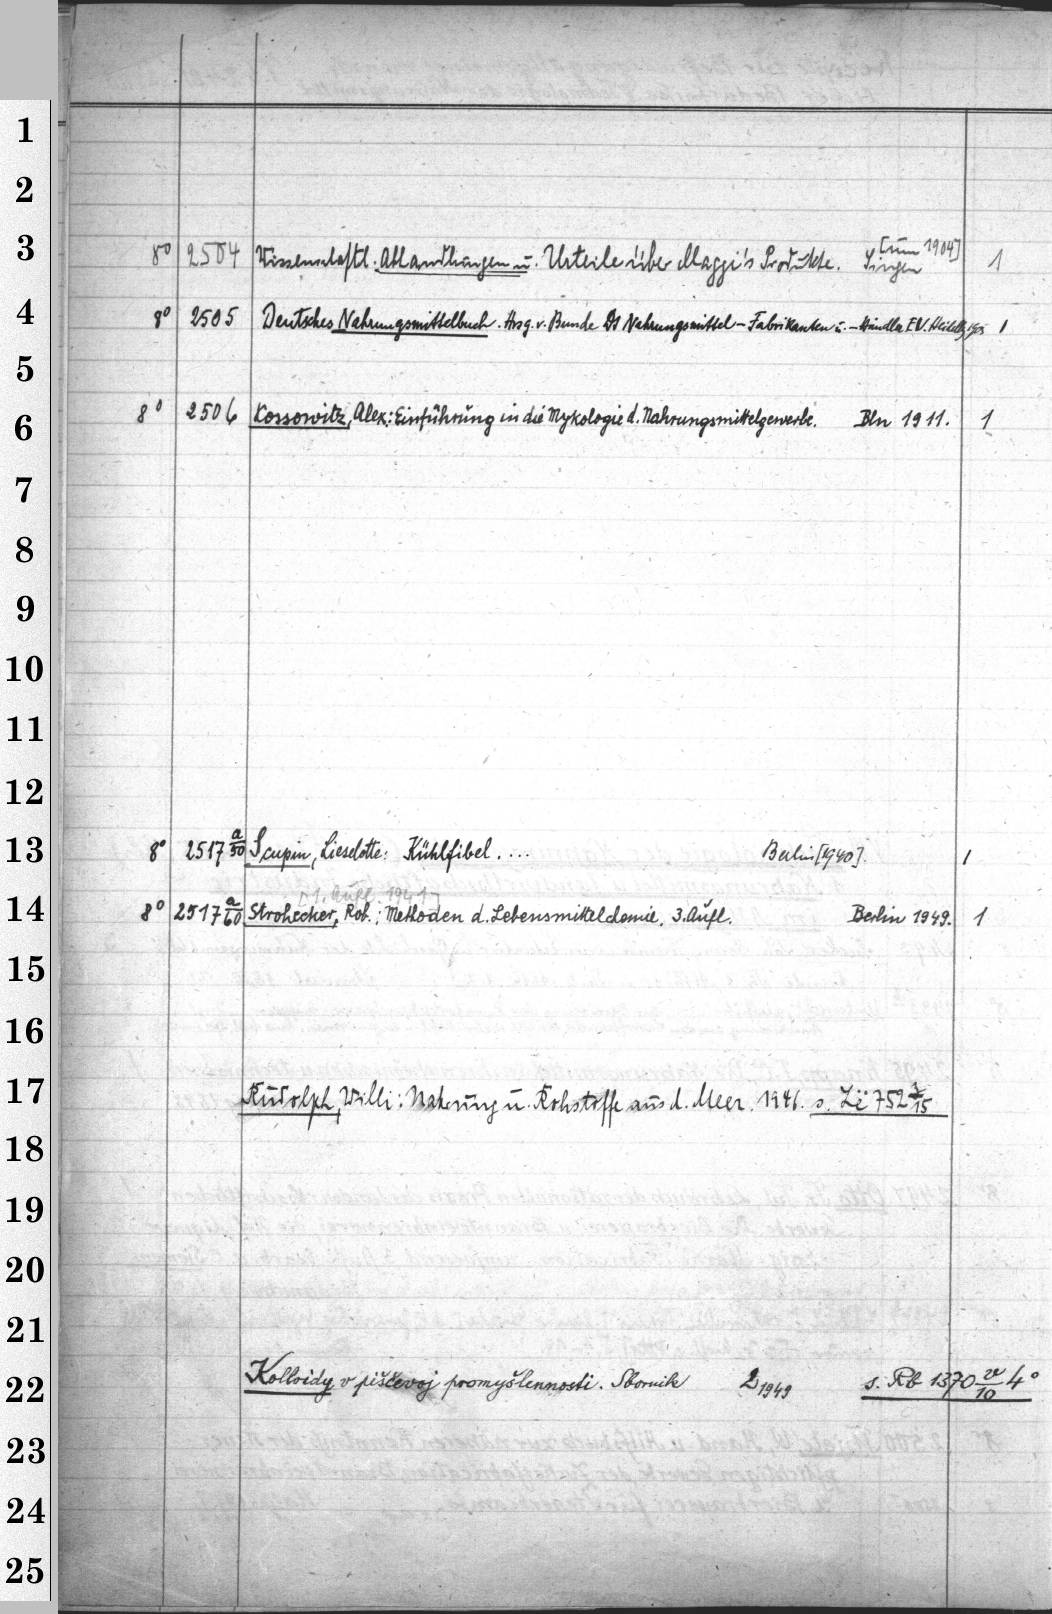 1
2
[um 1904]
3 8° 2504 Wissenschaftl. Abhandlungen u. Urteile über Maggi's Produkte. Singen 1
4 8° 2505 Deutsches Nahrungsmittelbuch. Hrsg. v. Bunde Dt Nahrungsmittel-Fabrikanten u. -Händler E.V. Heidelbg 1905 1
5
6 8° 2506 Kossowitz, Alex.: Einführung in die Mykologie d. Nahrungsmittelgewerbe. Bln 1911. 1
7
8
9
10
11
12
13 8° 2517 a/50 Scupin, Lieselotte: Kühlfibel. ... Berlin [1940]. 1
[1. Aufl. 1941]
14 8° 2517 a/60 Strohecker, Rob.: Methoden d. Lebensmittelchemie. 3. Aufl. Berlin 1949. 1
15
16
17 Rudolph, Willi: Nahrung u. Rohstoffe aus d. Meer. 1946. s. Zë 752 /15
18
19
20
21
22 Kolloidy v piščevoj promyšlennosti. Sbornik 2 1949 s. Rb 1370 /10 4°
23
24
25